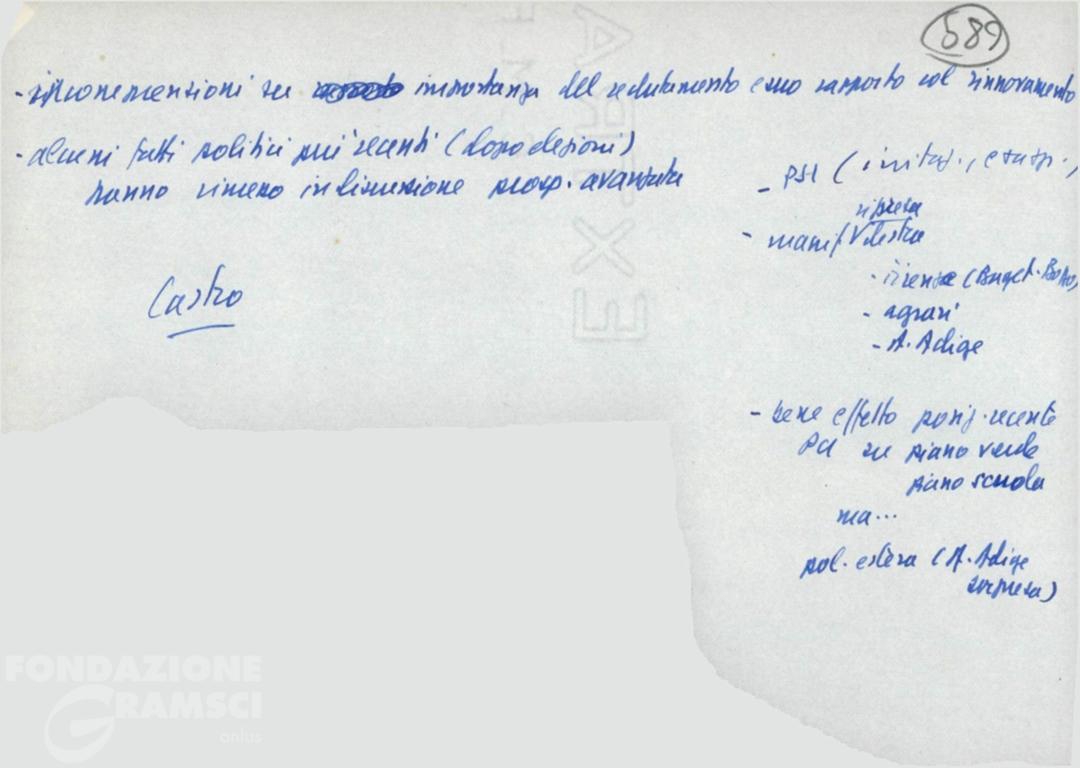 589
- importanza del reclutamento e suo rapporto col rinnovamento
- alcuni fatti politici più recenti (dopo elezioni)
hanno rimesso in discussione prosp. avanzata
Castro
- PSI (
ripresa
- manif. V destra
- Firenze (
- agrari
- A. Adige
- bene effetto posiz. recente
PCI su piano verde
piano scuola
ma...
pol. estera (A. Adige
sorpresa)
EX-LIBRARY
FONDAZIONE
GRAMSCI
onlus